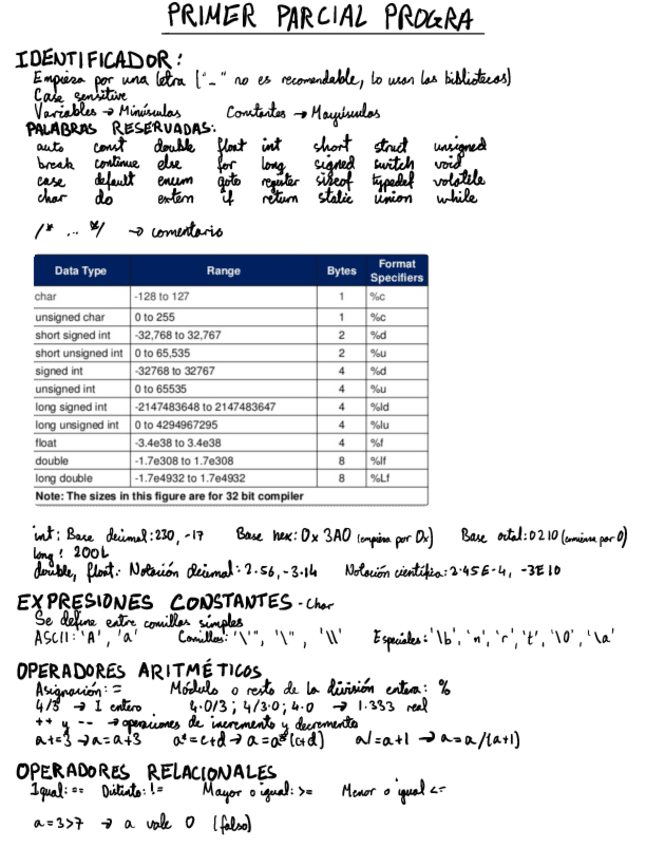 PRIMER PARCIAL PROGRA
IDENTIFICADOR:
Empieza por una letra ("_" no es recomendable, lo usan las bibliotecas)
Case sensitive
Variables → Minúsculas Constantes → Mayúsculas
PALABRAS RESERVADAS:
auto const double float int short struct unsigned
break continue else for long signed switch void
case default enum goto register sizeof typedef volatile
char do extern if return static union while
/* ... */ → comentario
Data Type Range Bytes Format Specifiers
char -128 to 127 1 %c
unsigned char 0 to 255 1 %c
short signed int -32,768 to 32,767 2 %d
short unsigned int 0 to 65,535 2 %u
signed int -32768 to 32767 4 %d
unsigned int 0 to 65535 4 %u
long signed int -2147483648 to 2147483647 4 %ld
long unsigned int 0 to 4294967295 4 %lu
float -3.4e38 to 3.4e38 4 %f
double -1.7e308 to 1.7e308 8 %lf
long double -1.7e4932 to 1.7e4932 8 %Lf
Note: The sizes in this figure are for 32 bit compiler
int: Base decimal: 230, -17 Base hex: 0x 3A0 (empieza por 0x) Base octal: 0210 (comienza por 0)
long: 200L
double, float: Notación decimal: 2.56, -3.14 Notación científica: 2.45E-4, -3E10
EXPRESIONES CONSTANTES - Char
Se define entre comillas simples
ASCII: 'A', 'a' Comillas: '\'', '\"', '\\' Especiales: '\b', '\n', '\r', '\t', '\0', '\a'
OPERADORES ARITMÉTICOS
Asignación: = Módulo o resto de la división entera: %
4/3 → 1 entero 4.0/3; 4/3.0; 4.0 → 1.333 real
++ y -- → operaciones de incremento y decremento
a+=3 → a=a+3 a*=c+d → a=a*(c+d) a/=a+1 → a=a/(a+1)
OPERADORES RELACIONALES
Igual: == Distinto: != Mayor o igual: >= Menor o igual <=
a=3>7 → a vale 0 (falso)